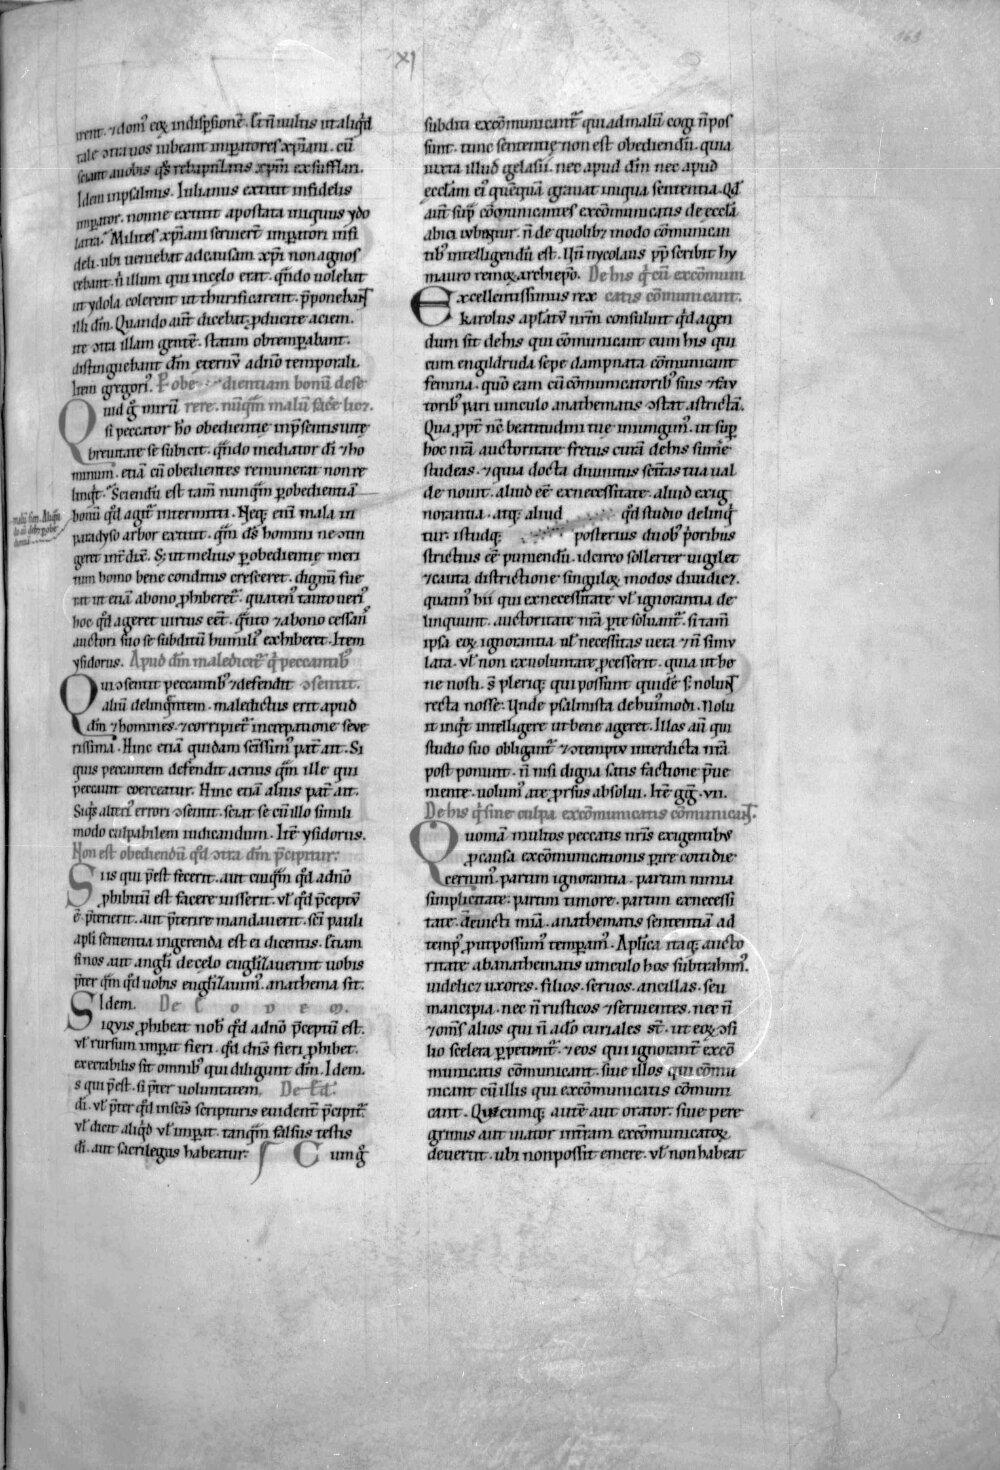 xj
163
uent. ⁊ dom᷒ eoꝝ in dispsionē. S; nū multis ut aliq̇d
tale ꝯtra uos iubeant impatores xp̄iani. cū
sciant a uobis
Idem in psalmis. Iulianus extitit infidelis
impator. nonne extitit apostata iniquus ydo
latra. Milites xp̄iani seruiert̄ impatori infi
deli. ubi ueniebat ad causam xp̄i non agnos
cebant. n̄ illum qui in celo erat. qn̄do uolebat
ut ydola colerent ut thurificarent. p̄ponebant
illi dm̄. Quando aūt dicebat. ꝓducite aciem.
ite ꝯtra illam gentē. statim obtempabant.
distinguebant dm̄ eternū a dn̄o temporali.
Item gregori᷒. P obe dientiam bonū dese
Quid g̊ mirū rere. nūq̄m malū facē lic&.
si peccator hō obedientie in p̄sentis uite
breuitate se subicit. qn̄do mediator di ⁊ ho
minum. etiā cū obedientes remunerat non re
linqt. Sciendū est tam̄ nunq̄m p obedientiā
bonū qd agit̄ intermitti. Neq; enī mala in
paradyso arbor extitit. q̄m ds̄ homini ne ꝯtin
geret int̄dix̄. S; ut melius p obedientie meri
tum homo bene conditus cresceret. dignū fue
rat ut etiā a bono ꝓhiberet̄. quaten᷒ tanto ueri᷒
hoc qd ageret uirtus eēt. q̄nto ⁊ a bono cessan᷒
auctori suo se subditū humili᷒ exhiberet. Item
ysidorus. Apud dm̄ maledicet̄ q̇ peccantib᷒
Qui ꝯsentit peccantib᷒ ⁊ defendit ꝯsentit.
aliū delinquentem. maledictus erit apud
dm̄ ⁊ homines. ⁊ corripiet̄ increpatione seue
rissima. Hinc etiā quidam sctissim᷒ pat̄ ait. Si
quis peccantem defendit acrius q̄m ille qui
peccauit coerceatur. Hinc etiā alius pat̄ ait.
Siq̇s alteri᷒ errori ꝯsentit. sciat se cū illo simili
modo culpabilem iudicandum. Itē ysidorus.
Non est obediendū qd ꝯtra dm̄ p̄cipitur.
Siis qui p̄est fecerit. aut cuiq̄m qd a dn̄o
ꝓhibitū est facere iusserit. ul̄ qd p̄ceptū
ē p̄terierit. aut p̄terire mandauerit. sc̄i pauli
apl̄i sententia ingerenda est ei dicentis. Etiam
si nos aut angl̄i de celo eugl̄izauerint uobis
p̄ter q̄m qd uobis eugl̄izauim᷒. anathema sit.
Idem. De eodem.
Siquis ꝓhibeat nob̄ qd a dn̄o p̄ceptū est.
ul̄ rursum impat fieri. qd dn̄s fieri ꝓhibet.
execrabilis sit omnib᷒ qui diligunt dm̄. Idem.
s qui p̄est. si p̄ter uoluntatem. De eod̄.
di. ul̄ p̄ter qd in sc̄is scripturis euident̄ p̄cipit̄.
ul̄ dicit aliqd ul̄ impat. tanq̄m falsus testis
di. aut sacrilegus habeatur. Cumq̊
subditi excōmunicant̄ qui ad malū cogi n̄ pos
sunt. tunc sententie non est obediendū. quia
iuxta illud gelasii. nec apud dm̄ nec apud
eccl̄am ei᷒ quēquā grauat iniqua sententia. Qd
aūt sup cōmunicantes excōmunicatis de eccl̄a
abici iubent̄. n̄ de quolib; modo cōmunican
tib᷒ intelligendū est. Un̄ nycolaus pp̄ scribit hy
mauro remoꝝ archiepō. De his q̇ cū excōmuni
Excellentissimus rex catis cōmunicant.
karolus apl̄atū nr̄m consuluit qd agen
dum sit de his qui cōmunicant cum his qui
cum engildruda sepe dampnata cōmunicant
femina. quō eam cū cōmunicatorib᷒ suis ⁊ fau
torib᷒ pari uinculo anathematis ꝯstat astrictā.
Qua ꝓpt̄ nc̄ beatitudini tue iniungim᷒. ut sup
hoc nr̄a auctoritate fretus curā de his sumē
studeas. ⁊ quia docta diuinitus sc̄itas tua ual
de nouit. aliud eē ex necessitate. aliud ex ig
norantia. atq; aliud qd studio delinq̇
tur. istudq; posterius duob᷒ p̄orib᷒
strictius eē puniendū. idcirco sollerter uigilet
⁊ cauta districtione singuloꝝ modos diuidic&.
quatin᷒ hii qui ex necessitate ul̄ ignorantia de
linquunt. auctoritate nr̄a p te soluant̄. si tam̄
ipsa eoꝝ ignorantia ul̄ necessitas uera ⁊ n̄ simu
lata. ul̄ non ex uoluntate ꝓcesserit. quia ut be
ne nosti. s̄ pleriq; qui possunt quidē s; nolunt
recta nosse. Unde psalmista de hui᷒modi. Nolu
it inqt intelligere ut bene ageret. Illos aūt qui
studio suo obligant̄ ⁊ ꝯtemptu interdicta nr̄a
post ponunt. n̄ nisi digna satis factione p̄ue
niente. uolum᷒ a te ꝓrsus absolui. Itē gg̅. vii.
De his q̇ sine culpa excōmunicatis cōmunicant.
Quoniā multos peccatis nr̄is exigentib᷒
ꝓ causa excōmunicationis pire cotidie
cernim᷒. partim ignorantia. partim nimia
simplicitate. partim timore. partim ex necessi
tate. deuicti mīa. anathematis sententiā ad
temp᷒ ꝓut possum᷒ tempam᷒. Apl̄ica itaq; aucto
ritate ab anathematis uinculo hos subtrahim᷒.
uidelic& uxores. filios. seruos. ancillas. seu
mancipia. nec n̄ rusticos ⁊ seruientes. nec n̄
⁊ om̄s alios qui n̄ adeo curiales st̄. ut eoꝝ ꝯsi
lio scelera ppetrent̄. ⁊ eos qui ignorant̄ excō
municatis cōmunicant. siue illos qui cōmu
nicant cū illis qui excōmunicatis cōmuni
cant. Quicumq; autē aut orator. siue pere
grinus aut uiator in t̄ram excōmunicatoꝝ
deuerit. ubi non possit emere. ul̄ non habeat